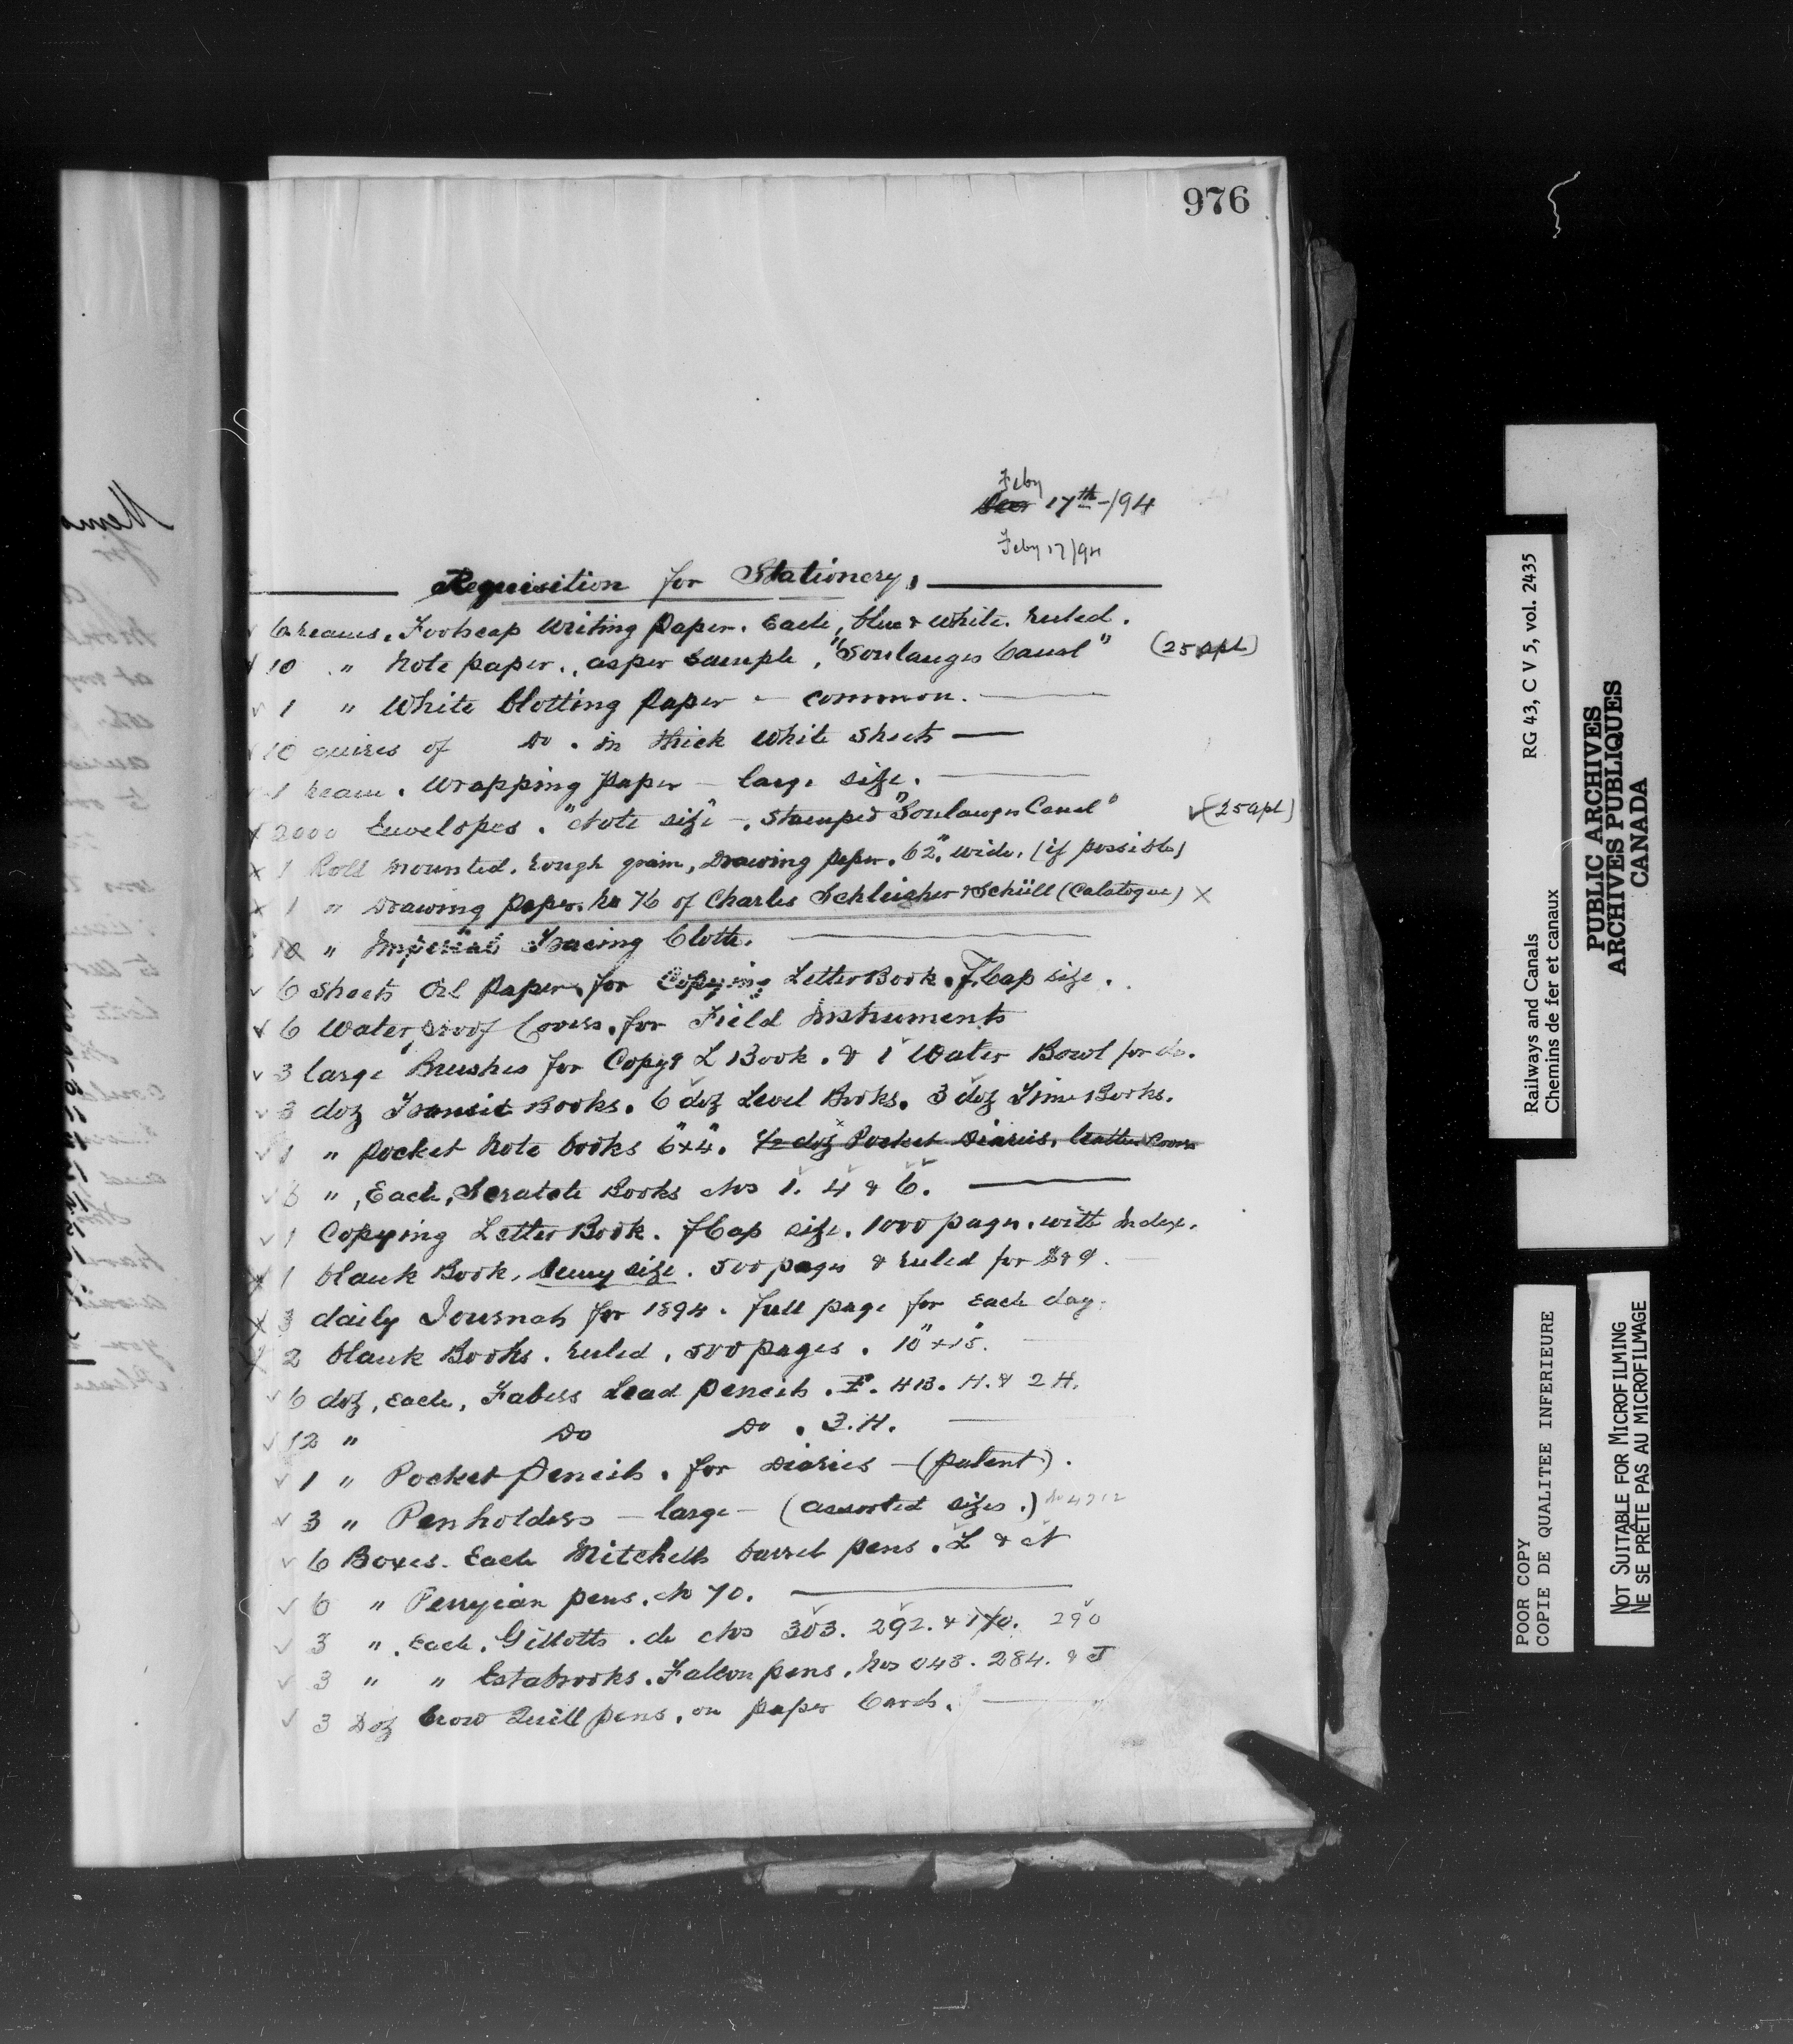 976
Feby
Dec 17th-/94
Feby 17/94
Requisition for Stationery,
6 reams. Foolscap Writing Paper. Each, blue & White. ruled.
10 " Note paper., as per Sample, "Soulanges Canal" (25 apl)
1 " White blotting Paper - common.
10 quires of Do. in thick White Sheets
1 ream. Wrapping Paper - large size.
2000 Envelopes. "Note size" -. Stamped "Soulanges Canal" (25 apl)
1 Roll mounted. rough grain, Drawing paper. 62" wide. (if possible)
1 " Drawing Paper. No 76 of Charles Schleicher & Schüll (Catalogue) X
10 " Imperial Tracing Cloth.
6 Sheets Oil Paper. for Copying Letter Book. F. Cap size.
6 Water proof Covers. for Field Instruments
3 large Brushes for Copyg L Book. & 1 Water Bowl for do.
3 doz Transit Books. 6 doz Level Books. 3 doz Time Books.
1 " Pocket Note books 6"x4". 1/2 doz Pocket Diaries, leather Covers
3 " , Each, Scratch Books Nos 1. 4 & 6.
1 Copying Letter Book. fCap size. 1000 pages. with Index.
1 blank Book, Demy size. 500 pages & ruled for
3 daily Journals for 1894. full page for Each day.
2 blank Books. ruled. 500 pages. 10"x15".
6 doz, Each, Fabers Lead Pencils. F. HB. H. & 2H.
12 " Do Do. 3.H.
1 " Pocket Pencils. for Diaries - (patent).
3 " Penholders - large - (assorted sizes.)
6 Boxes. Each Mitchells barrel pens. L & N
6 " Perryian pens. No 70.
3 " . Each. Gillotts. do Nos 303. 292. & 170. 290
3 " " Estabrooks. Falcon pens. Nos 048. 284. & J
3 Doz Crow Quill pens. on paper Cards.
Railways and Canals RG 43, C V 5, vol. 2435
Chemins de fer et canaux
PUBLIC ARCHIVES
ARCHIVES PUBLIQUES
CANADA
POOR COPY
COPIE DE QUALITEE INFERIEURE
NOT SUITABLE FOR MICROFILMING
NE SE PRÊTE PAS AU MICROFILMAGE